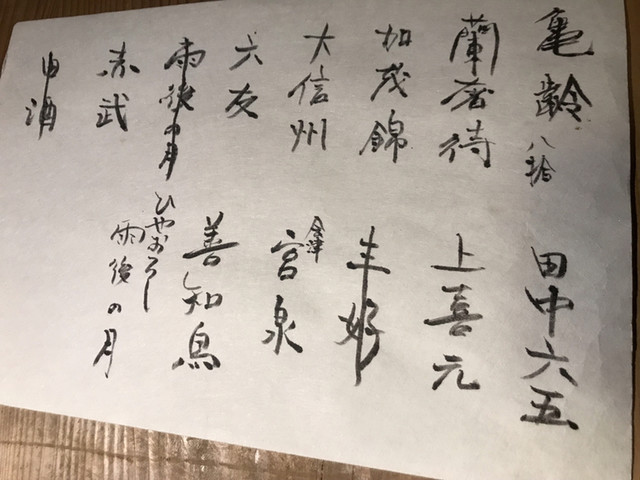 亀齢 八拾
蘭奢待
加茂錦
大信州
六友
雨後の月
赤武
由酒
田中六五
上喜元
丰好
会津 宮泉
善知鳥
ひやおろし
雨後の月